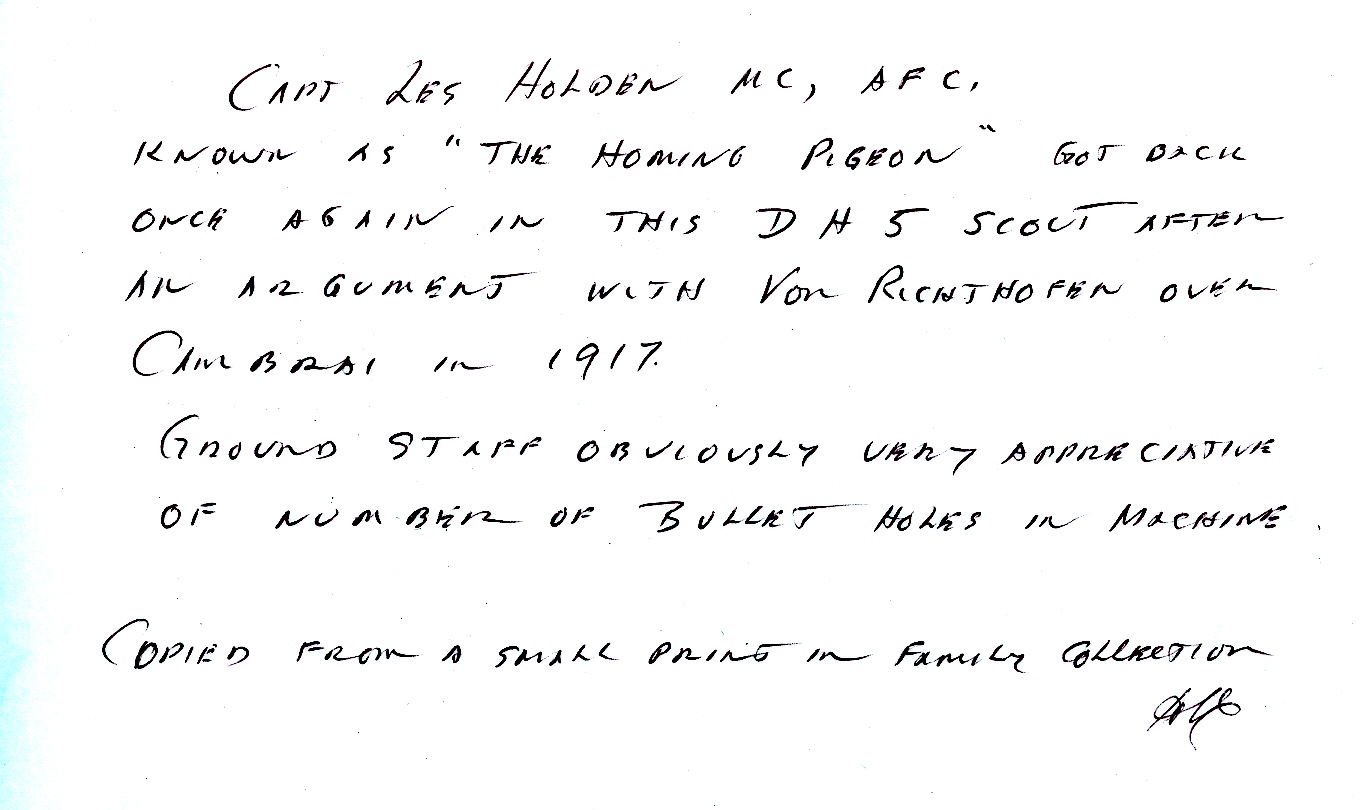 CAPT LES HOLDEN MC, AFC.
KNOWN AS "THE HOMING PIGEON" GOT BACK
ONCE AGAIN IN THIS DH5 SCOUT AFTER
AN ARGUMENT WITH VON RICHTHOFEN OVER
CAMBRAI IN 1917.
GROUND STAFF OBVIOUSLY VERY APPRECIATIVE
OF NUMBER OF BULLET HOLES IN MACHINE.
COPIED FROM A SMALL PRINT IN FAMILY COLLECTION